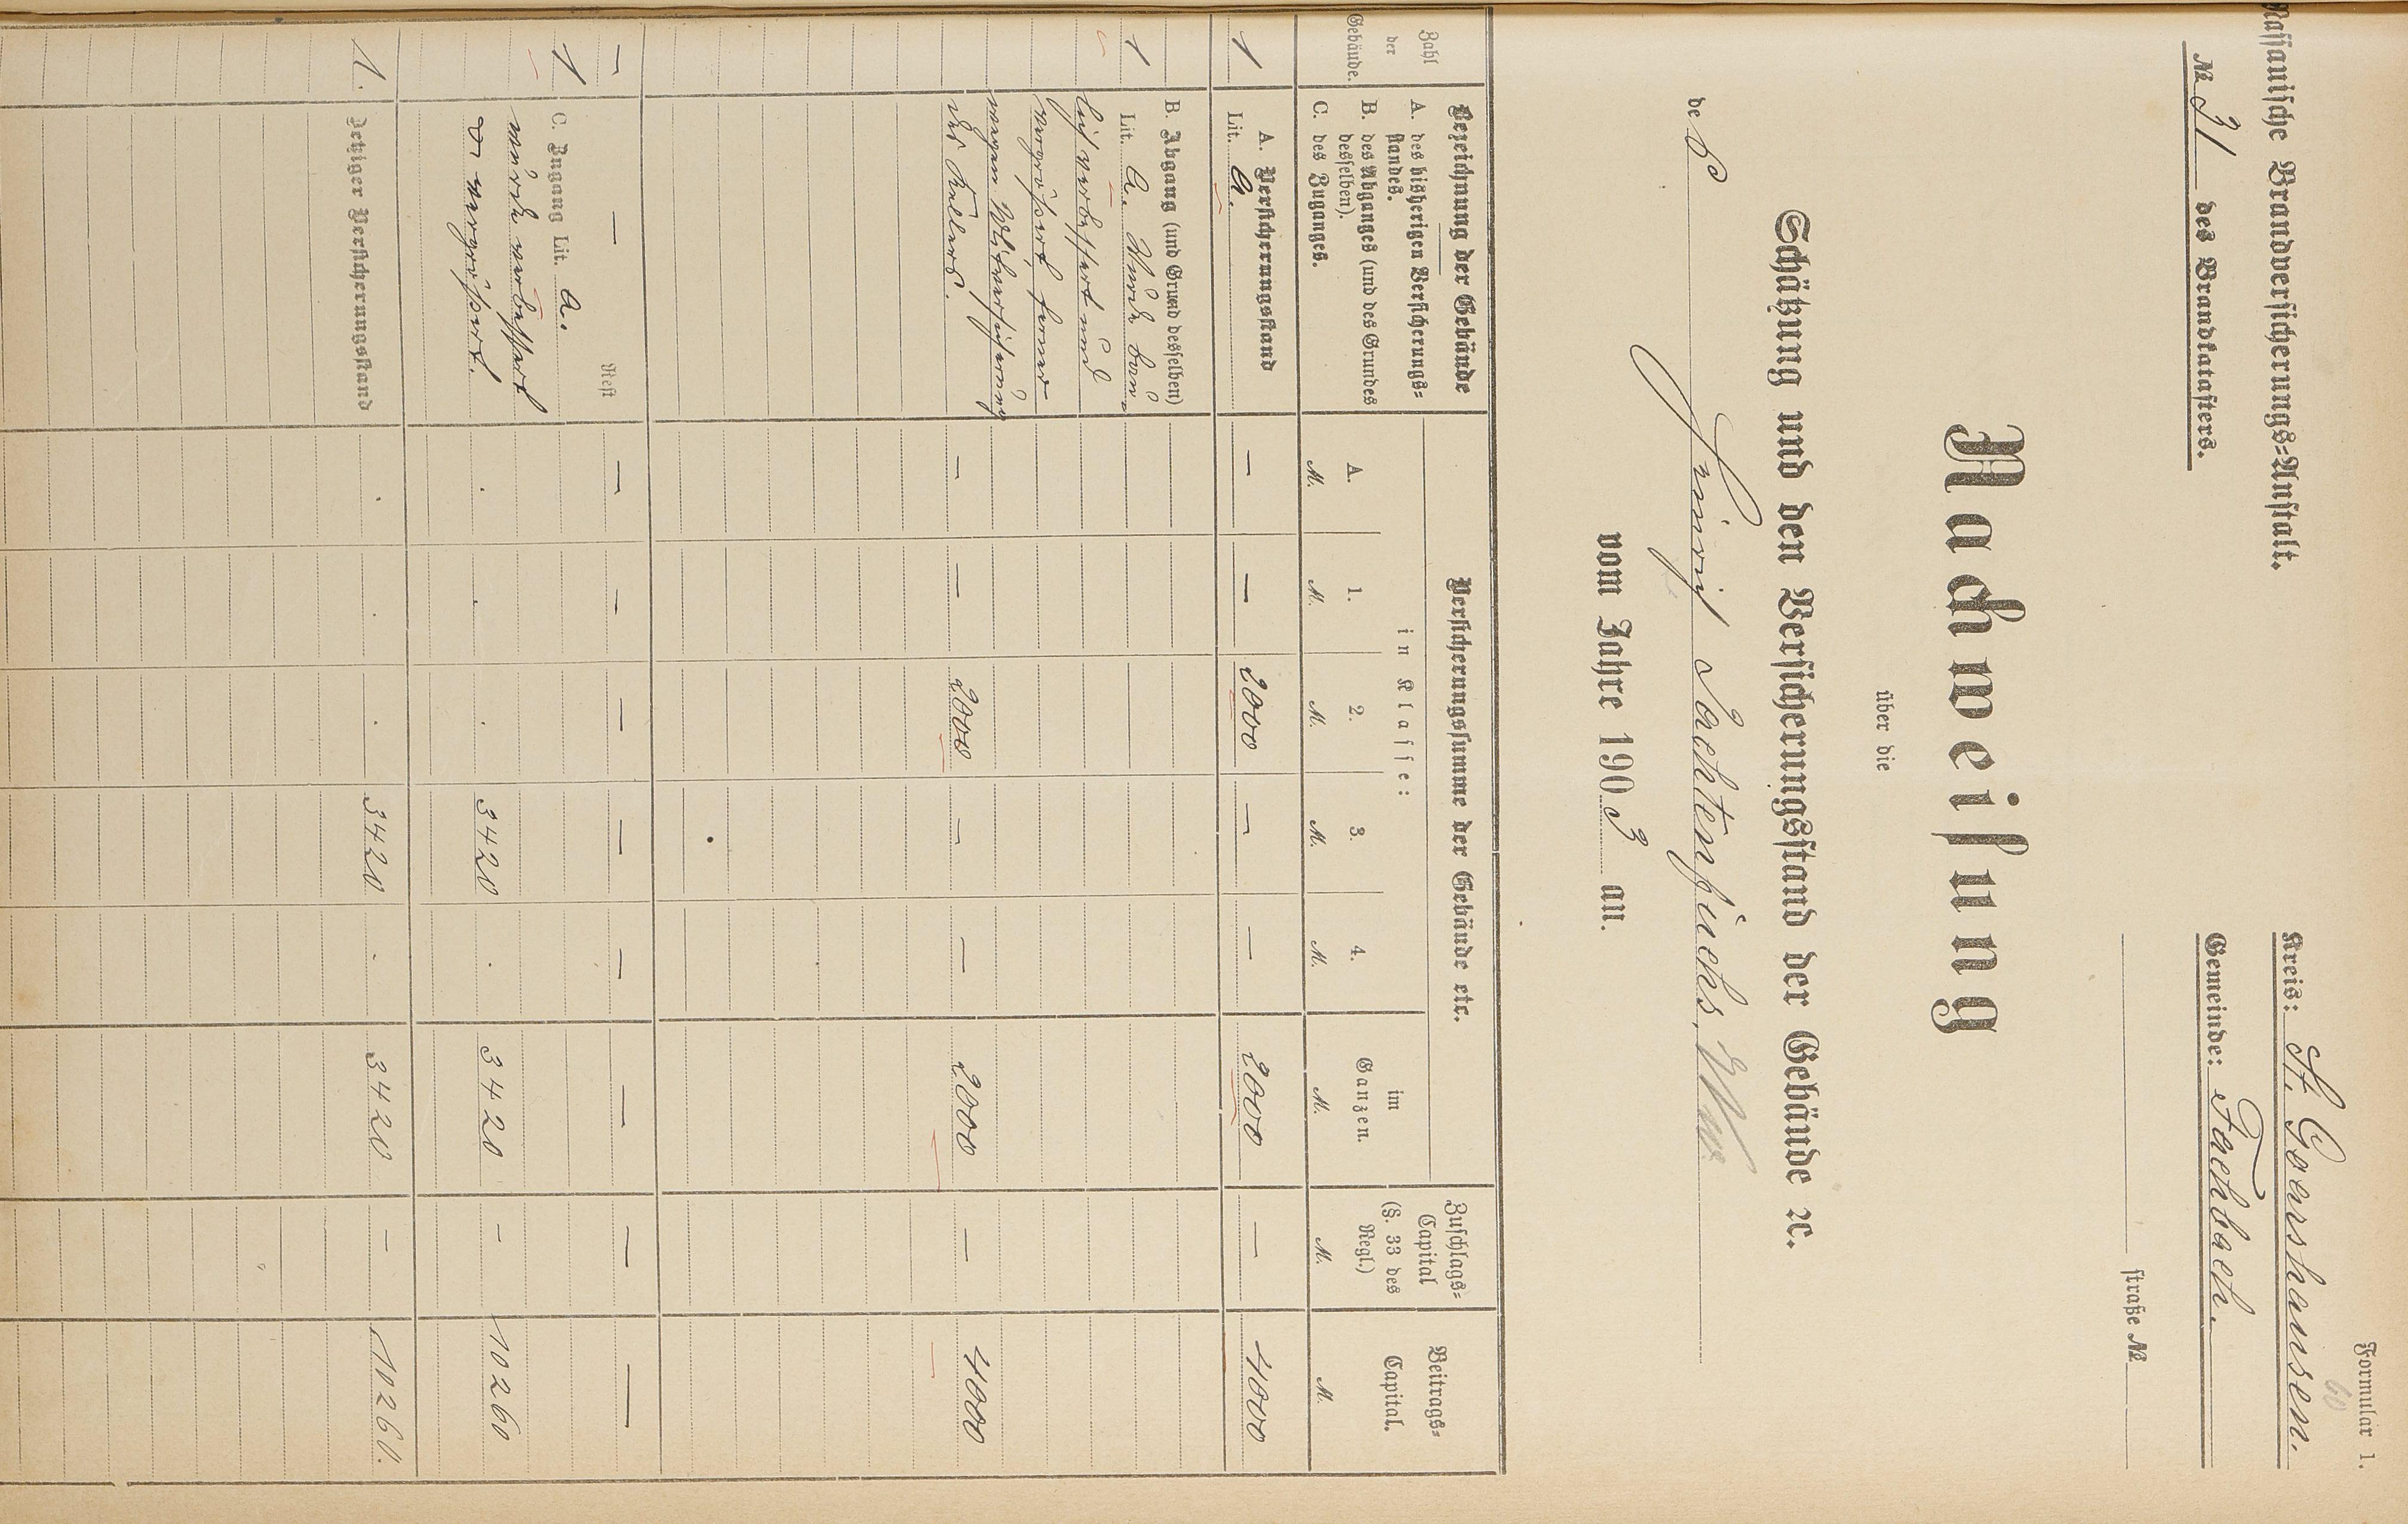 Formular 1.
60
Nassauische Brandversicherungs=Anstalt.
Kreis: St. Goarshausen.
№ 31 des Brandkatasters.
Gemeinde: Fachbach.
straße №
Nachweisung
über die
Schätzung und den Versicherungsstand der Gebäude ꝛc.
des Heinrich Wwe.
vom Jahre 1903 an.
Zahl der Gebäude.
Bezeichnung der Gebäude
A. des bisherigen Versicherungs=
standes.
B. des Abganges (und des Grundes
desselben).
C. des Zuganges.
Versicherungssumme der Gebäude etc.
in Klasse:
A. 1. 2. 3. 4. im Ganzen.
Zuschlags=
Capital
(§. 33 des
Regl.)
Beitrags=
Capital.
M. M. M. M. M. M. M. M.
A. Versicherungsstand
1 Lit. a. — — 2000 — — 2000 — 4000
B. Abgang (und Grund desselben)
1 Lit. a. Wurde bau=
lich verbessert und
vergrößert, ferner
wegen Mitversicherung
des Kellers. — — 2000 — — 2000 — 4000
— Rest — — — — — — — — —
1 C. Zugang Lit. a.
wurde verbessert
u vergrößert. . . . 3420 . 3420 - 10260
1. Jetziger Versicherungsstand . . . 3420 . 3420 - 10260.